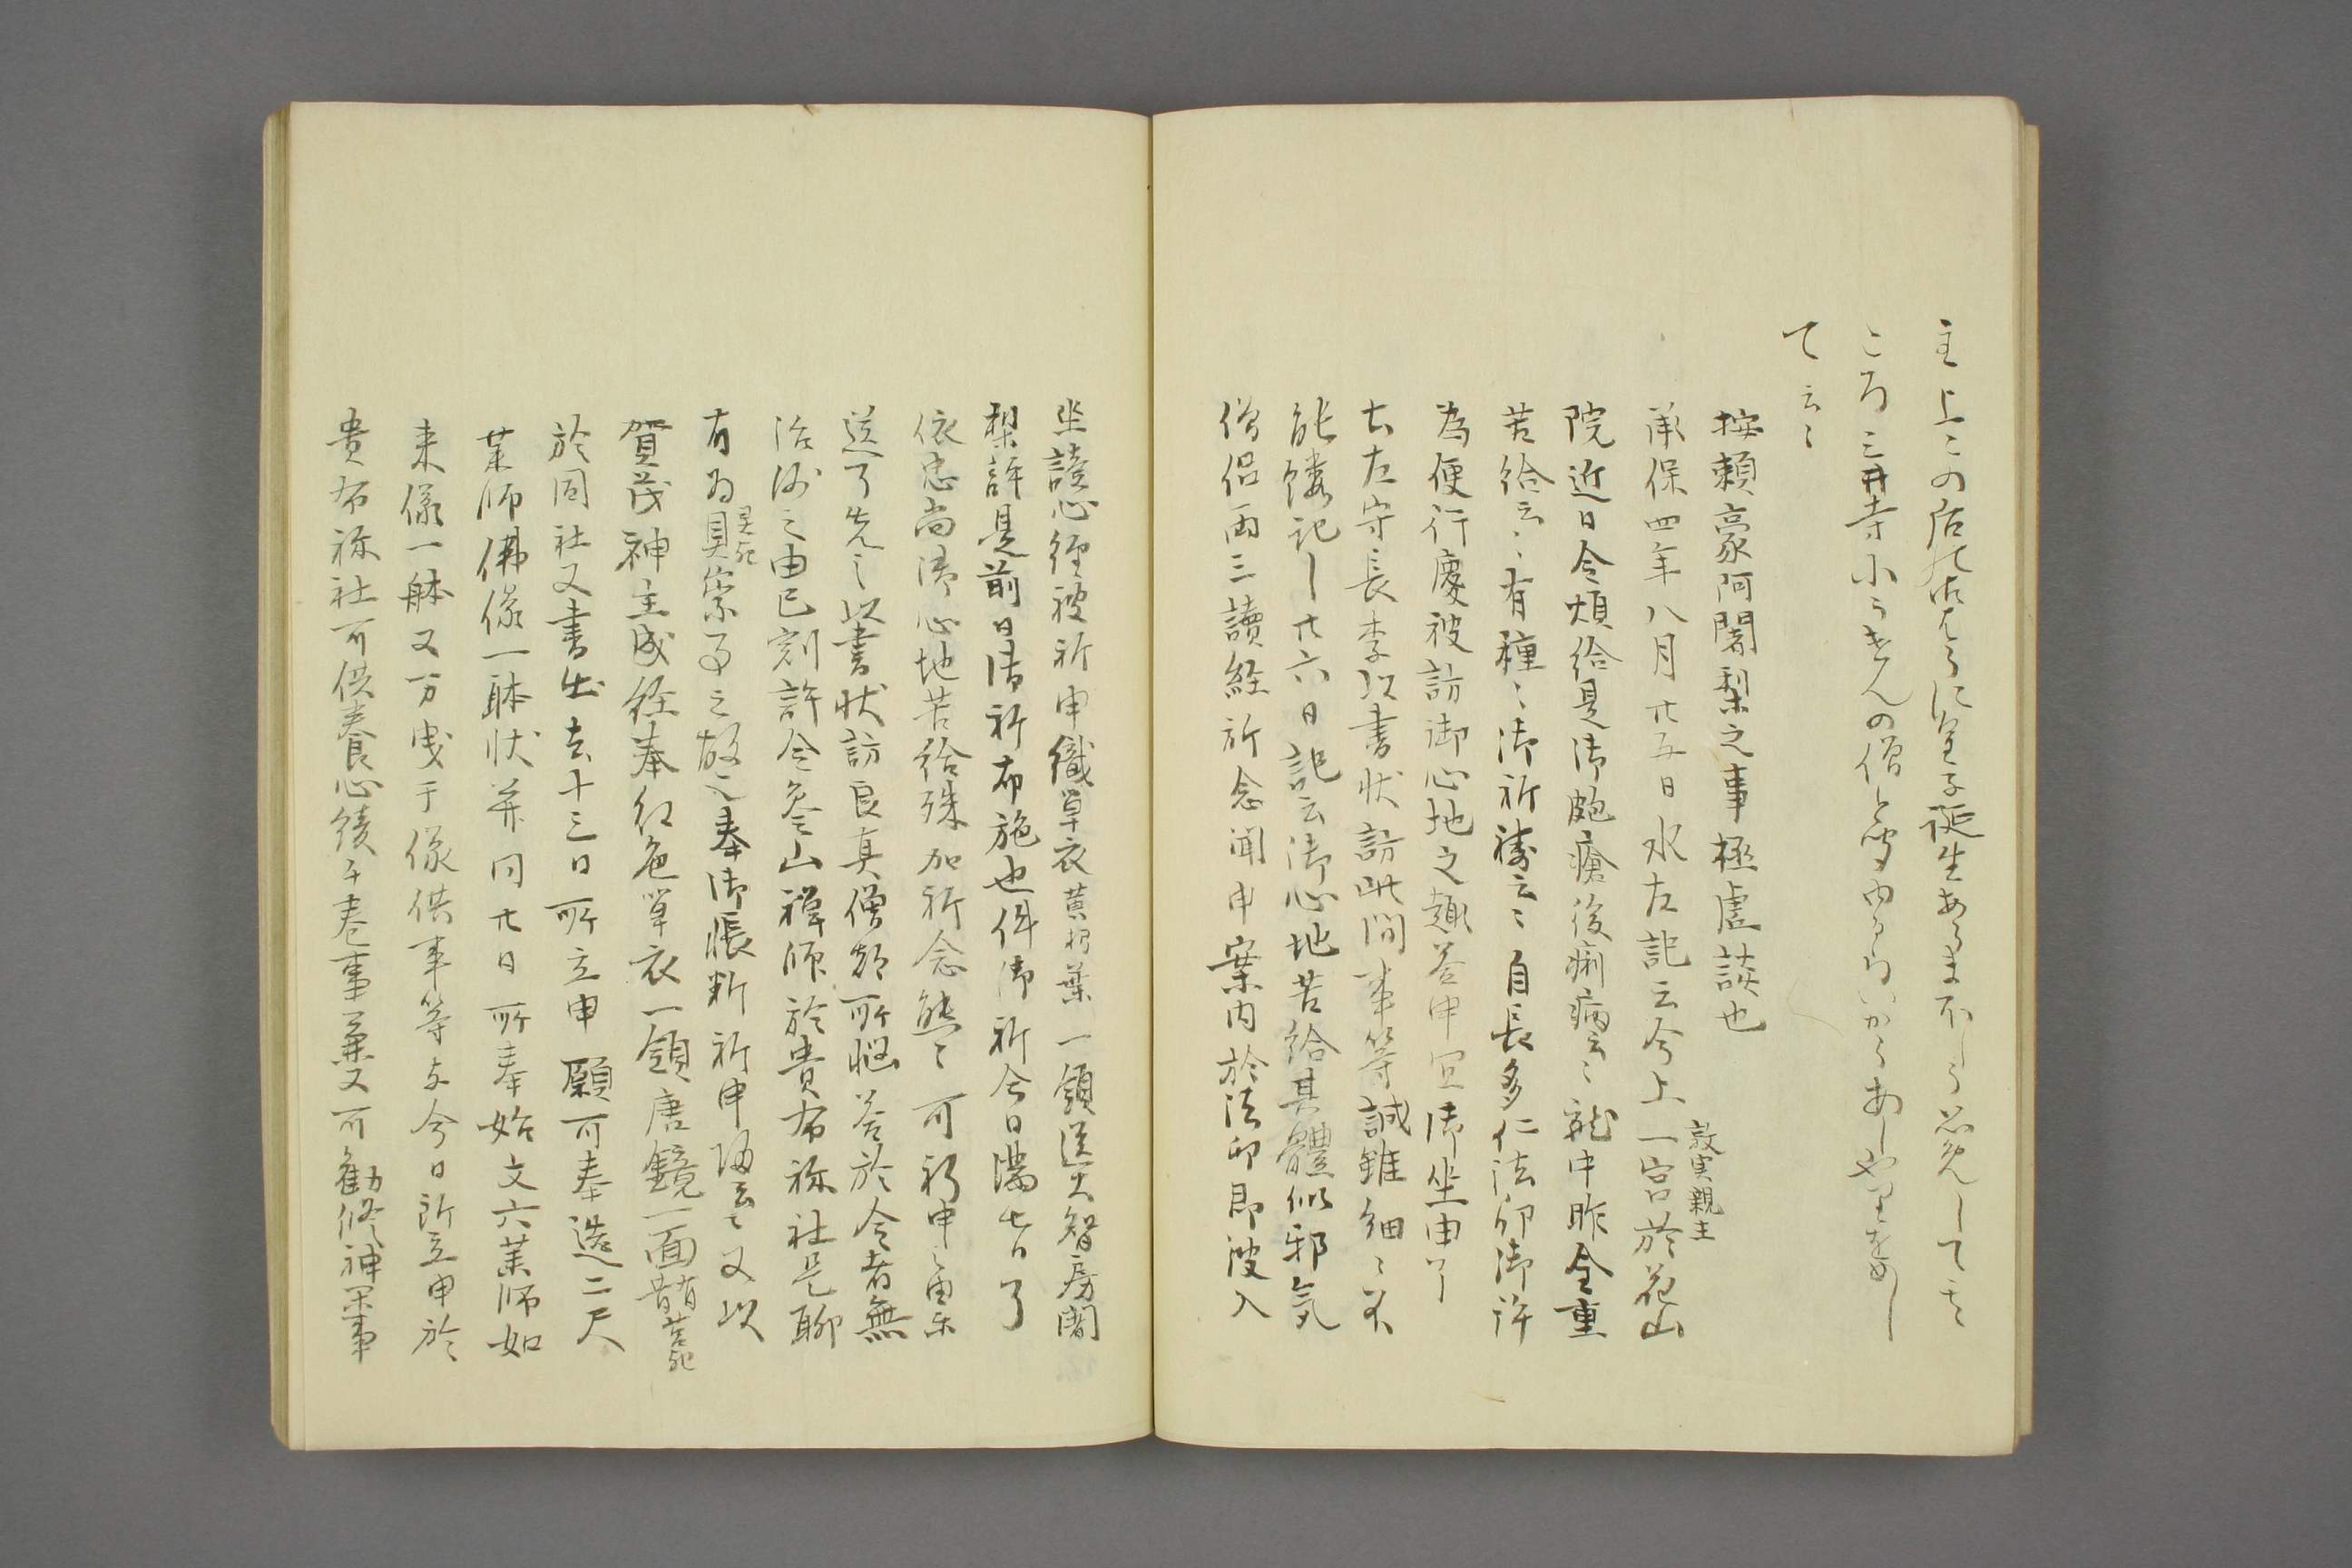 主上この后の御はらに皇子誕生あらまほしう思免して其
ころ三井寺にうきんの僧と聞ゆる頼豪あしやりをめし
て云〻
按頼豪阿闍梨之事極虚談也
承保四年八月廿五日水左記云今上一宮於花山
敦実親王
院近日令煩給是御皰瘡後痢病云〻就中昨今重
苦給云〻有種〻御祈禱云〻自長多仁法印御許
為便行慶被訪御心地之趣答申宜御坐由了
去左守長季以書状訪此間事等誠雖細〻不
能縷記廿六日記云御心地苦給其體似邪気
僧侶両三讀経祈念聞申案内於法印即渡入
坐讀心経被祈申織単衣黄朽葉一領送大智房闍
梨許是前日御祈布施也件御祈今日満七日了
依忠尚御心地苦給殊加祈念態〻可祈申之由示
送了先之以書状訪良真僧都所悩答於今者無
治術之由巳刻許令参山禅師於貴布祢社是聊
有為貝祟事之故也奉御帳新祈申帰云〻又以
賀茂神主成経奉紅色単衣一領唐鏡一面
於同社又書出去十三日所立申願可奉造二尺
薬師佛像一躰状并同廿日所奉始丈六薬師如
来像一躰又万曳于像供事等与今日所立申於
貴布祢社可供養心経千巻事兼又可勤修神楽事